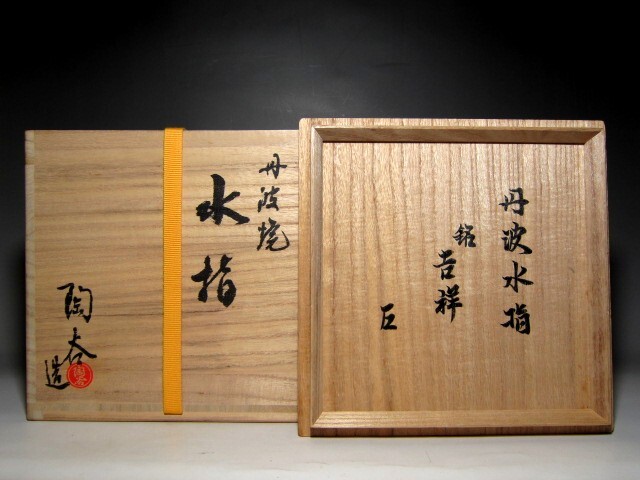 丹波水指
銘 吉祥
巨
丹波焼
水指
陶 造